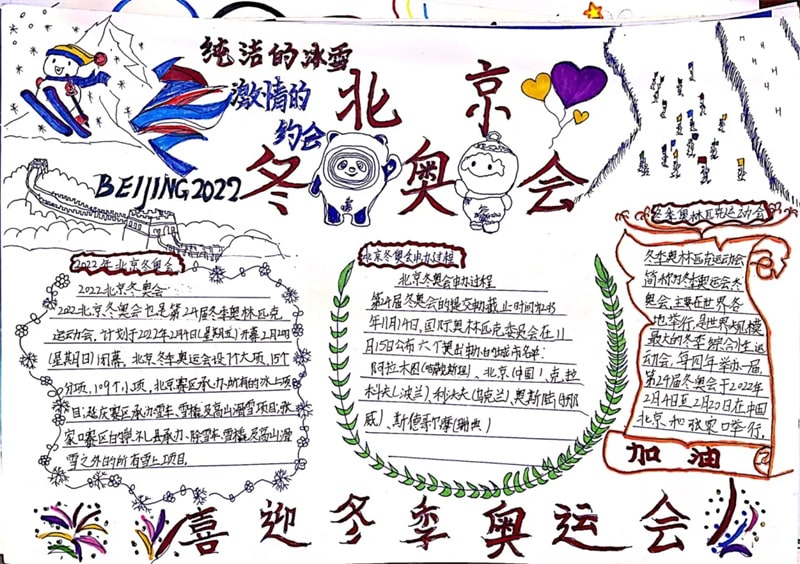 纯洁的冰雪
激情的
约会
北京
冬奥会
BEIJING2022
2022年北京冬奥会
2022北京冬奥会
2022北京冬奥会也是第24届冬季奥林匹克
运动会,计划于2022年2月4日(星期五)开幕,2月20日
(星期日)闭幕。北京冬季奥运会设7个大项,15个
分项,109个小项。北京赛区承办所有的冰上项
目;延庆赛区承办雪车、雪橇及高山滑雪项目;张
家口赛区的崇礼县承办除雪车、雪橇及高山滑
雪之外的所有雪上项目。
北京冬奥会申办过程
北京冬奥会申办过程
第24届冬奥会的提交期截止时间为2013
年11月14日,国际奥林匹克委员会在11
月15日公布六个提出申办的城市名单:
阿拉木图(哈萨克斯坦)、北京(中国)、克拉
科夫(波兰)、利沃夫(乌克兰)、奥斯陆(挪
威)、斯德哥尔摩(瑞典)
冬季奥林匹克运动会
冬季奥林匹克运动会
简称为冬季奥运会、冬
奥会,主要在世界各
地举行,是世界规模
最大的冬季综合性运
动会,每四年举办一届,
第24届冬奥会于2022年
2月4日至2月20日在中国
北京和张家口举行。
加油
喜迎冬季奥运会